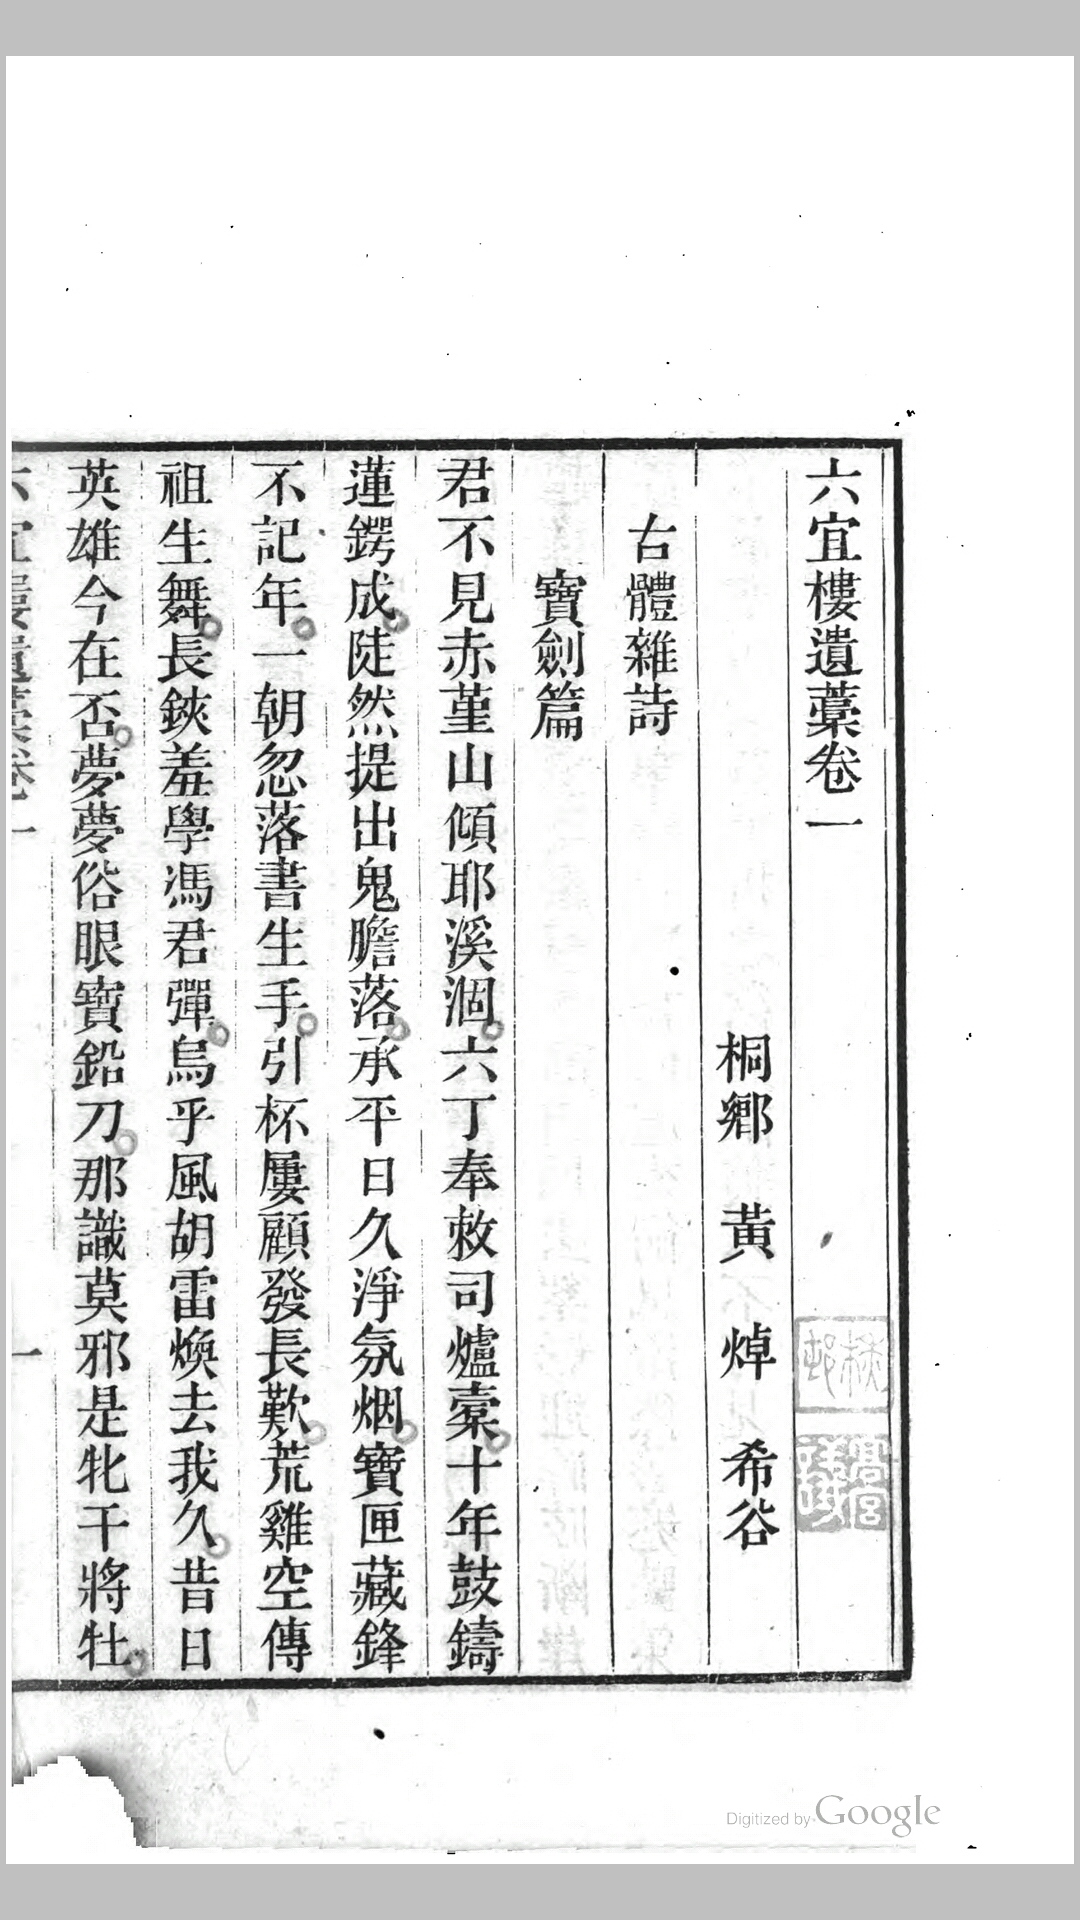 六宜樓遺藁卷一
桐鄉 黃焯 希谷
古體雜詩
寶劍篇
君不見赤堇山傾耶溪涸六丁奉敕司爐橐十年鼓鑄
蓮鍔成陡然提出鬼膽落承平日久淨氛烟寶匣藏鋒
不記年一朝忽落書生手引杯屢顧發長歎荒雞空傳
祖生舞長鋏羞學馮君彈烏乎風胡雷煥去我久昔日
英雄今在否夢夢俗眼寶鉛刀那識莫邪是牝干將牡
六宜樓遺藁卷一
一
Digitized by Google